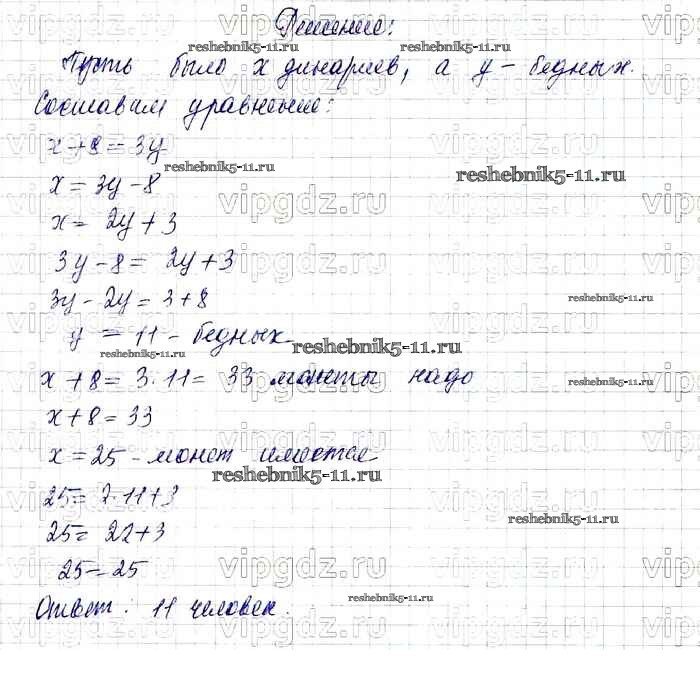 Решение:
Пусть было x динариев, а y - бедных.
Составим уравнение:
x+8=3y
x=3y-8
x=2y+3
3y-8=2y+3
3y-2y=3+8
y=11-бедных
x+8=3·11=33 монеты надо
x+8=33
x=25-монет имеется
25=2·11+3
25=22+3
25=25
Ответ: 11 человек.